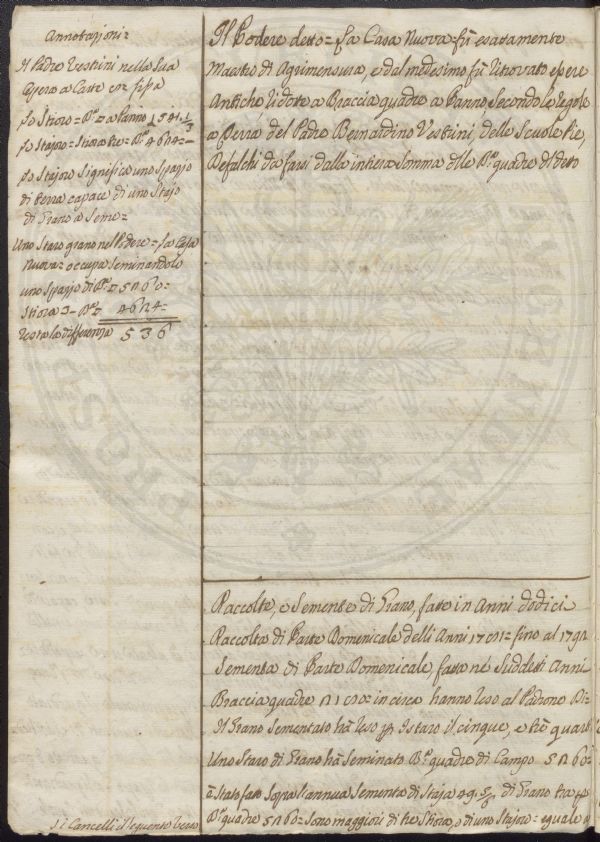 Annotazioni=
Il Padre Vestrini nella sua
Opera a Carte 
Lo Stioro = Br.a □ a Panno 1541 1/3
Lo Stajoro = Stiora tre = Br.a 4624 =
Lo Stajoro significa uno spazzo
di terra capace di uno Stajo
di Grano a seme =
Uno Staro grano nel Podere = La Casa
Nuova = occupa seminandolo
uno spazzo di Br.a □ 5160 =
Stiora 3 = Br.a □ 4624 =
resta la differenza 536
Si Cancelli il seguente verso
Il Podere detto = La Casa Nuova = fù esattamente
Maestro di Agrimensura, e dal medesimo fù ritrovato essere
Antiche, ridotte a Braccia quadre a Panno secondo le regole
a Terra del Padre Bernardino Vestrini, delle Scuole Pie,
Defalchi da farsi dalla intiera somma delle Br.a quadre di detto
Raccolte, e Semente di Grano, fatte in Anni dodici
Raccolta di Parte Domenicale delli Anni fino al
Sementa di Parte Domenicale, fatta ne Suddetti Anni
Braccia quadre in circa hanno reso al Padrone Di=
Il Grano Sementato hà reso p Istaro il cinque, e trè quarti
Uno Staro di Grano hà Seminato Br.a quadre di Campo 5160
è stato fatto sopra l'annua Sementa di Staja 49 di Grano
Br.a quadre 5160 = sono maggiori di tre Stiora, o di uno Stajoro = eguale a